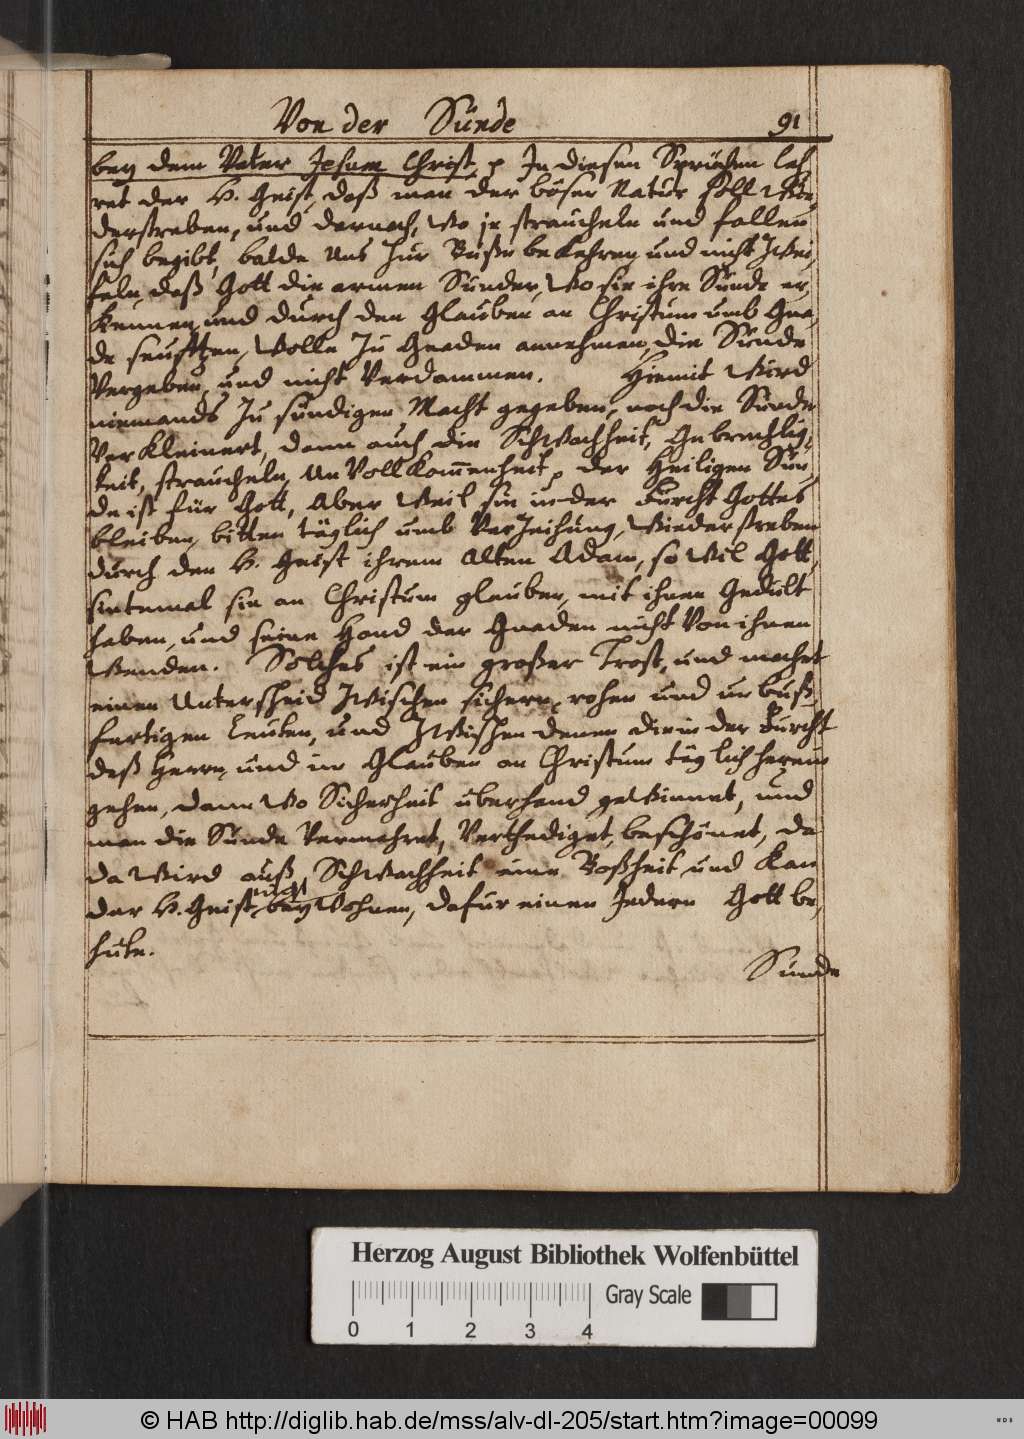 Von der Sünde 91
bey dem Vater Jesum Christ, p In diesen Sprüchen leh,
ret der H. Geist, daß man der bösen Natur soll wie,
derstreben, und darnach, wo je straucheln und fallen
sich begibt, balde uns zur Buße bekehren, und nicht zwei,
feln, daß Gott die armen Sünder, wo sie ihre Sünde er,
kennen, und durch den Glauben an Christum umb Gna,
de seufftzen, wolle zu Gnaden annehmen, die Sünde
vergeben, und nicht verdammen. Hiemit wird
niemands zu sündigen Macht gegeben, noch die Sünde
verkleinert, denn auch die Schwachheit, Gebrechlig,
keit, straucheln, unvollkom̄enheit, p der Heiligen Sün,
de ist für Gott, Aber weil sie in der Furcht Gottes
bleiben, bitten täglich umb verzeihung, wiederstreben
durch den H. Geist ihrem Alten Adam, so wil Gott,
sintemal sie an Christum glauben, mit ihnen Gedult
haben, und seine Hand der Gnaden nicht von ihnen
wenden. Solches ist ein großer Trost, und machet
einen Unterscheid zwischen sichern, rohen und unbuß,
fertigen Leuten, und zwischen denen die in der Furcht
deß Herrn, und im Glauben an Christum täglich herein
gehen, dann wo Sicherheit überhand gewinnet, und
man die Sünde vermehret, verthediget, beschönet, da
da wird auß Schwachheit eine Boßheit und kan
der H. Geist nicht beywohnen, dafur einen Jedern Gott be,
hüte.
Sünde
Herzog August Bibliothek Wolfenbüttel
Gray Scale
0 1 2 3 4
© HAB http://diglib.hab.de/mss/alv-dl-205/start.htm?image=00099